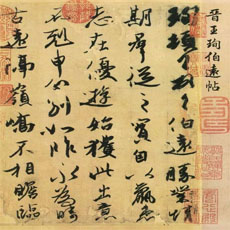 晋王珣伯遠帖
珣頓首頓首伯遠勝業情
期羣從之寶自以羸患
志在優遊始獲此出意
不剋申分別如昨永為疇
古遠隔嶺嶠不相瞻臨